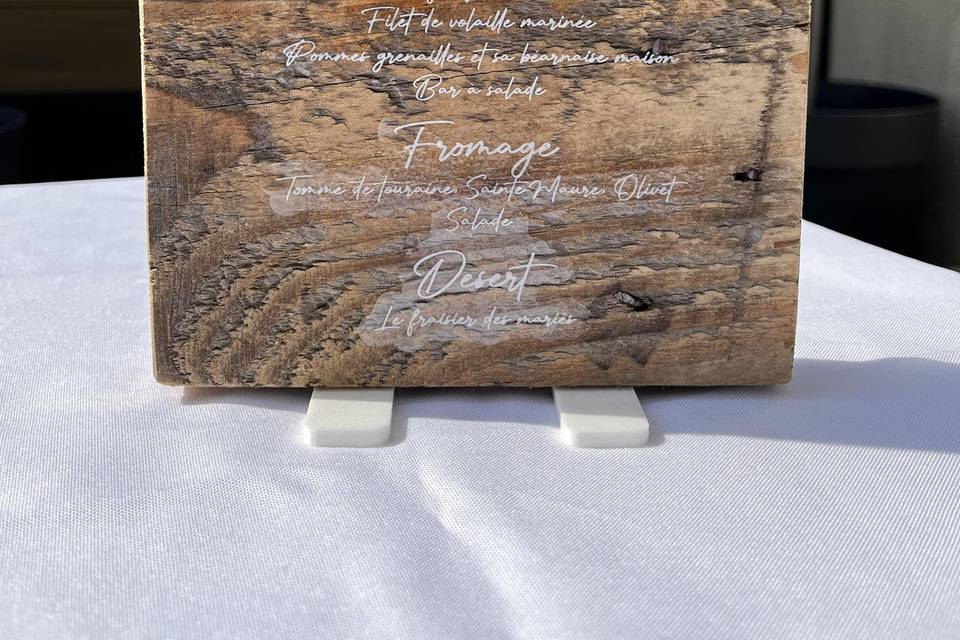 Filet de volaille marinée
Pommes grenailles et sa béarnaise maison
Bar à salade
Fromage
Tomme de touraine, Sainte Maure, Olivet
Salade
Desert
Le fraisier des mariés